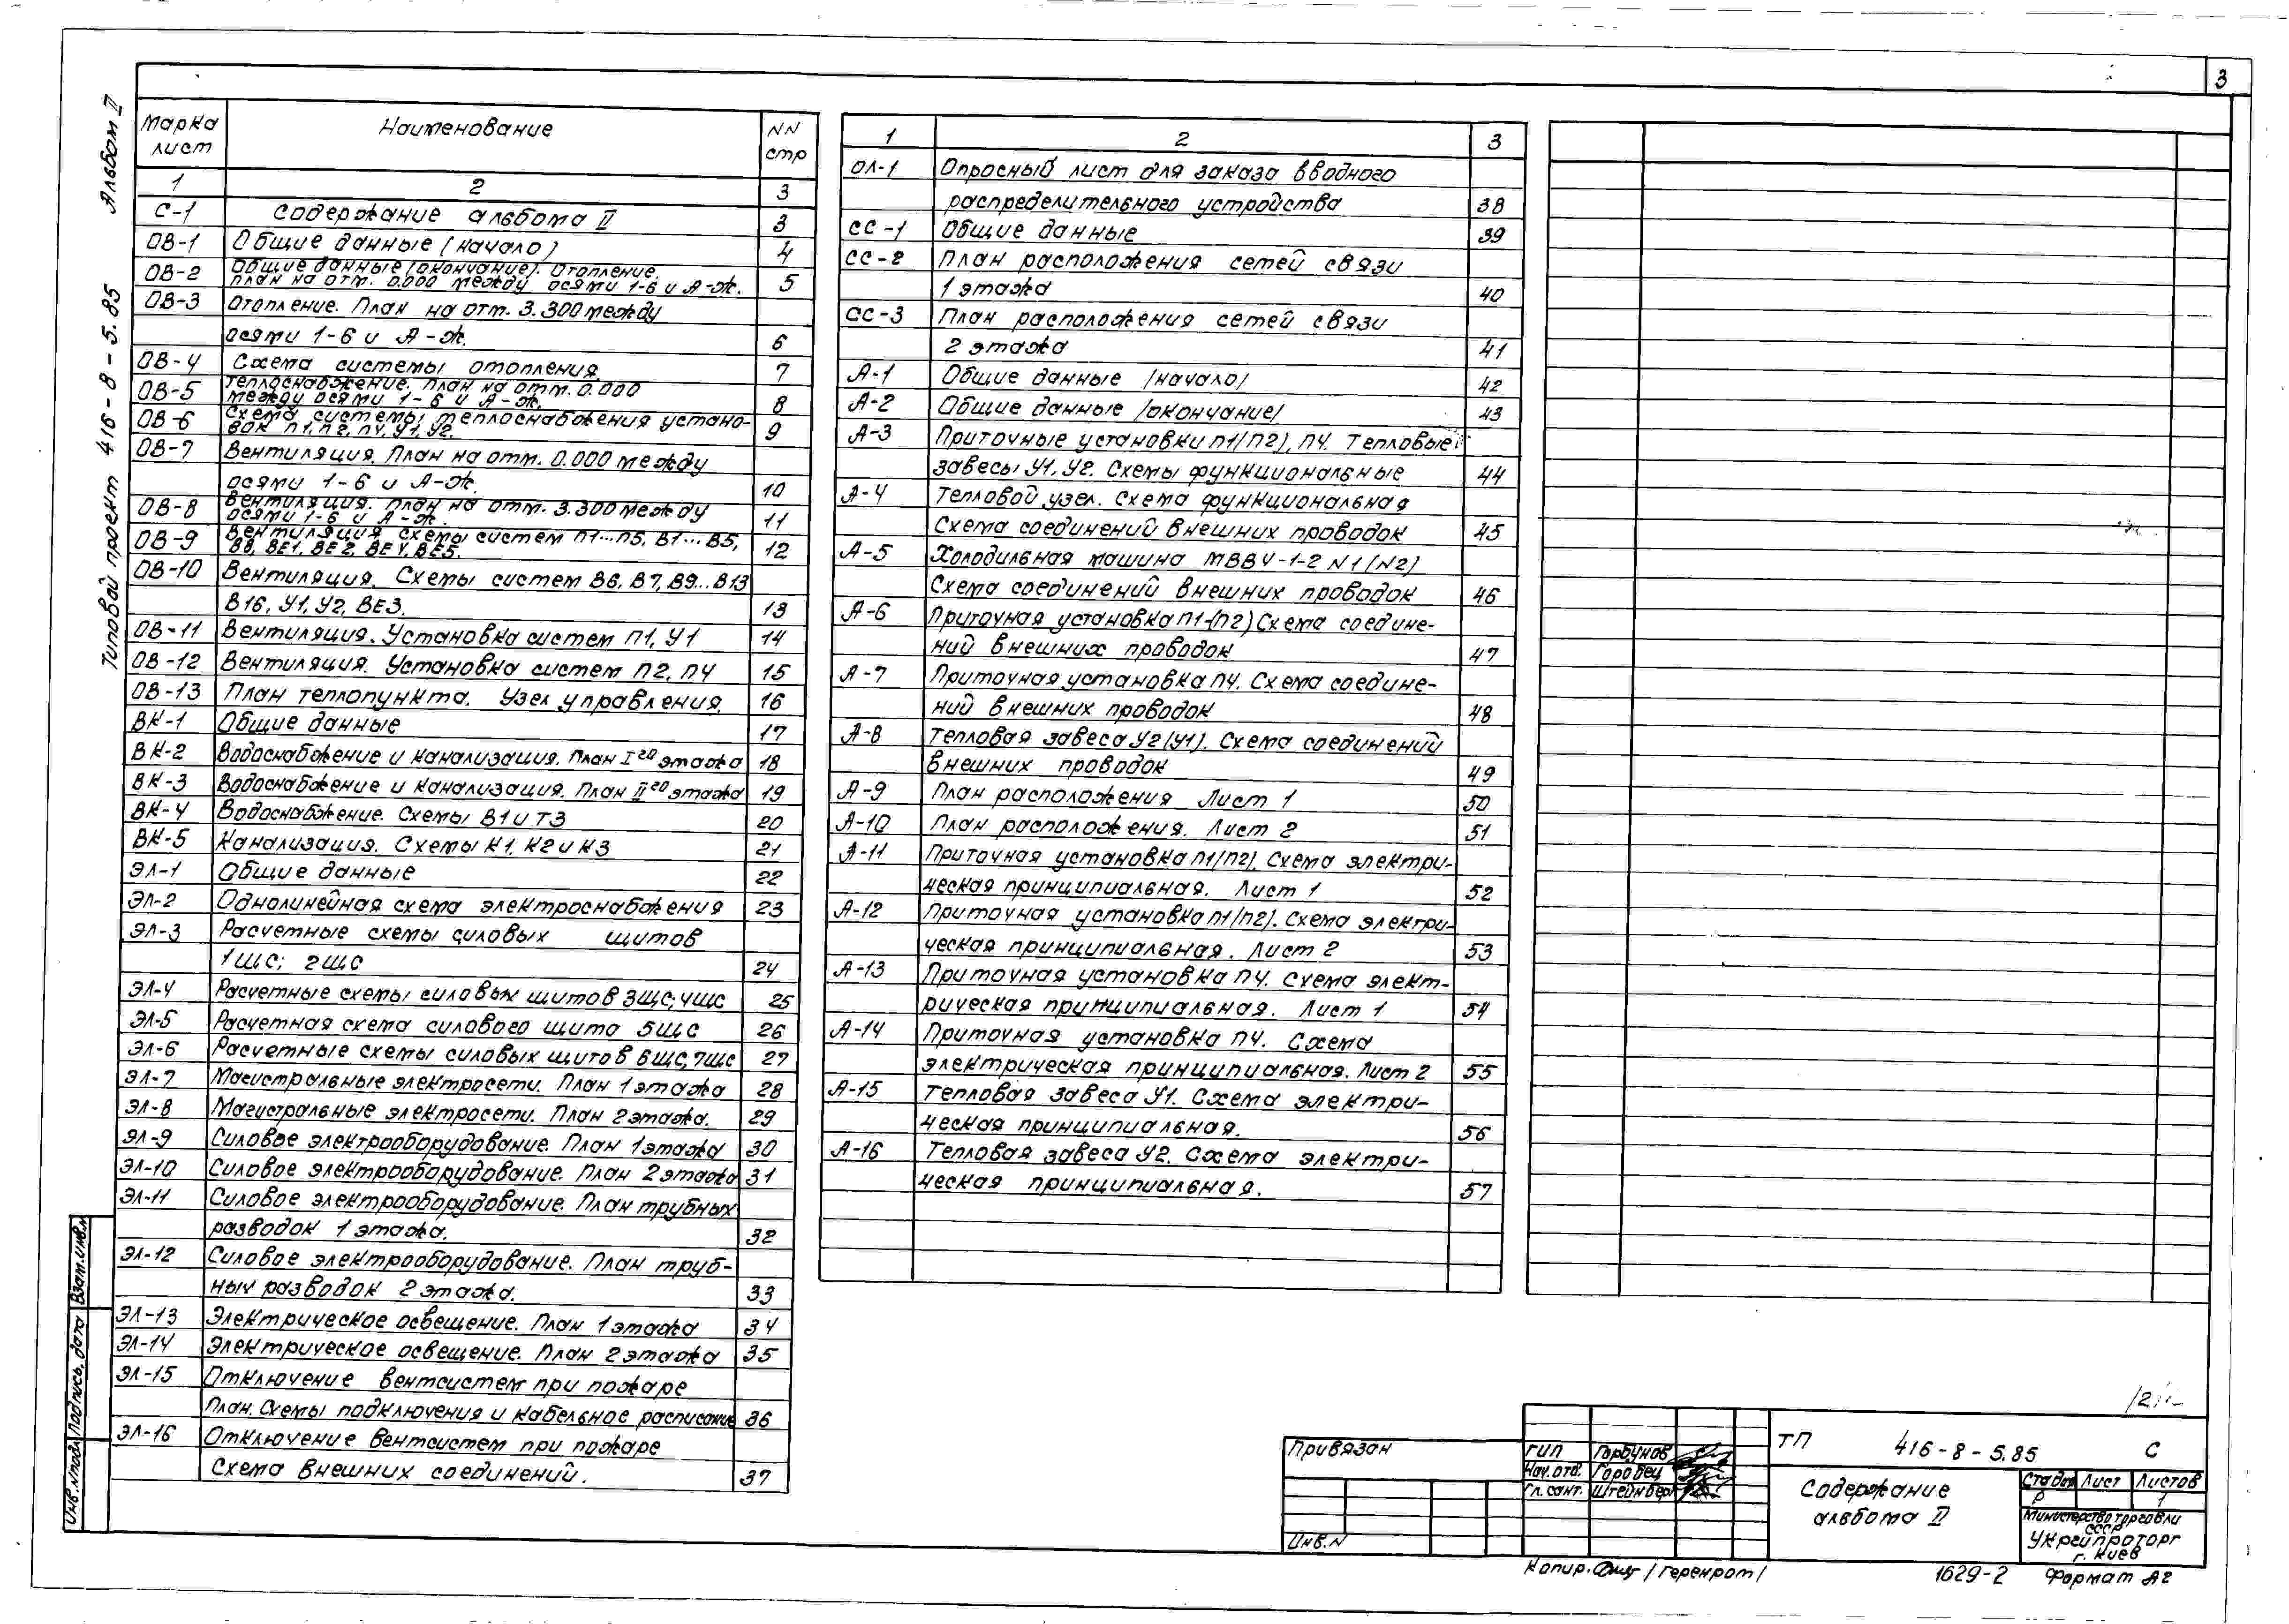 3
Альбом II
Типовой проект 416-8-5.85
Марка лист Наименование NN стр
1 2 3
С-1 Содержание альбома II 3
ОВ-1 Общие данные (начало) 4
ОВ-2 Общие данные (окончание). Отопление.
План на отм. 0.000 между осями 1-6 и А-Ж. 5
ОВ-3 Отопление. План на отм. 3.300 между
осями 1-6 и А-Ж. 6
ОВ-4 Схема системы отопления. 7
ОВ-5 Теплоснабжение. План на отм. 0.000
между осями 1-6 и А-Ж. 8
ОВ-6 Схема системы теплоснабжения устано-
вок П1, П2, П4, У1, У2. 9
ОВ-7 Вентиляция. План на отм. 0.000 между
осями 1-6 и А-Ж. 10
ОВ-8 Вентиляция. План на отм. 3.300 между
осями 1-6 и А-Ж. 11
ОВ-9 Вентиляция схемы систем П1...П5, В1...В5,
В8, ВЕ1, ВЕ2, ВЕ4, ВЕ5. 12
ОВ-10 Вентиляция. Схемы систем В6, В7, В9...В13
В16, У1, У2, ВЕ3. 13
ОВ-11 Вентиляция. Установка систем П1, У1 14
ОВ-12 Вентиляция. Установка систем П2, П4 15
ОВ-13 План теплопункта. Узел управления. 16
ВК-1 Общие данные 17
ВК-2 Водоснабжение и канализация. План I го этажа 18
ВК-3 Водоснабжение и канализация. План II го этажа 19
ВК-4 Водоснабжение. Схемы В1 и Т3 20
ВК-5 Канализация. Схемы К1, К2 и К3 21
ЭЛ-1 Общие данные 22
ЭЛ-2 Однолинейная схема электроснабжения 23
ЭЛ-3 Расчетные схемы силовых щитов
1ЩС; 2ЩС 24
ЭЛ-4 Расчетные схемы силовых щитов 3ЩС; 4ЩС 25
ЭЛ-5 Расчетная схема силового щита 5ЩС 26
ЭЛ-6 Расчетные схемы силовых щитов 6ЩС, 7ЩС 27
ЭЛ-7 Магистральные электросети. План 1 этажа 28
ЭЛ-8 Магистральные электросети. План 2 этажа. 29
ЭЛ-9 Силовое электрооборудование. План 1 этажа 30
ЭЛ-10 Силовое электрооборудование. План 2 этажа 31
ЭЛ-11 Силовое электрооборудование. План трубных
разводок 1 этажа. 32
ЭЛ-12 Силовое электрооборудование. План труб-
ных разводок 2 этажа. 33
ЭЛ-13 Электрическое освещение. План 1 этажа 34
ЭЛ-14 Электрическое освещение. План 2 этажа 35
ЭЛ-15 Отключение вентсистем при пожаре
План. Схемы подключения и кабельное расписание 36
ЭЛ-16 Отключение вентсистем при пожаре
Схема внешних соединений. 37
1 2 3
ОЛ-1 Опросный лист для заказа вводного
распределительного устройства 38
СС-1 Общие данные 39
СС-2 План расположения сетей связи
1 этажа 40
СС-3 План расположения сетей связи
2 этажа 41
А-1 Общие данные /начало/ 42
А-2 Общие данные /окончание/ 43
А-3 Приточные установки П1(П2), П4. Тепловые
завесы У1, У2. Схемы функциональные 44
А-4 Тепловой узел. Схема функциональная
Схема соединений внешних проводок 45
А-5 Холодильная машина МВВ4-1-2 N1 (N2)
Схема соединений внешних проводок 46
А-6 Приточная установка П1-(П2) Схема соедине-
ний внешних проводок 47
А-7 Приточная установка П4. Схема соедине-
ний внешних проводок 48
А-8 Тепловая завеса У2(У1). Схема соединений
внешних проводок 49
А-9 План расположения Лист 1 50
А-10 План расположения. Лист 2 51
А-11 Приточная установка П1/П2). Схема электри-
ческая принципиальная. Лист 1 52
А-12 Приточная установка П1/П2). Схема электри-
ческая принципиальная. Лист 2 53
А-13 Приточная установка П4. Схема элект-
рическая принципиальная. Лист 1 54
А-14 Приточная установка П4. Схема
электрическая принципиальная. Лист 2 55
А-15 Тепловая завеса У1. Схема электри-
ческая принципиальная. 56
А-16 Тепловая завеса У2. Схема электри-
ческая принципиальная. 57
Взам.инв.N
Подпись, дата
Инв.N подл
Привязан
Инв.N
ГИП Горбунов
Нач.отд. Горобец
Гл.сант. Штейнберг
ТП 416-8-5.85 С
Содержание
альбома II
Стадия Лист Листов
Р 1
Министерство торговли
СССР
Укргипроторг
г. Киев
Копир. /Геренрот/
1629-2 Формат А2